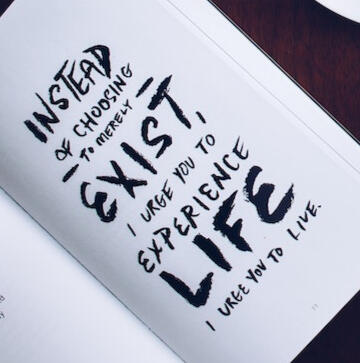 INSTEAD
OF CHOOSING
- TO MERELY -
EXIST,
I URGE YOU TO
EXPERIENCE
LIFE
I URGE YOU TO LIVE.